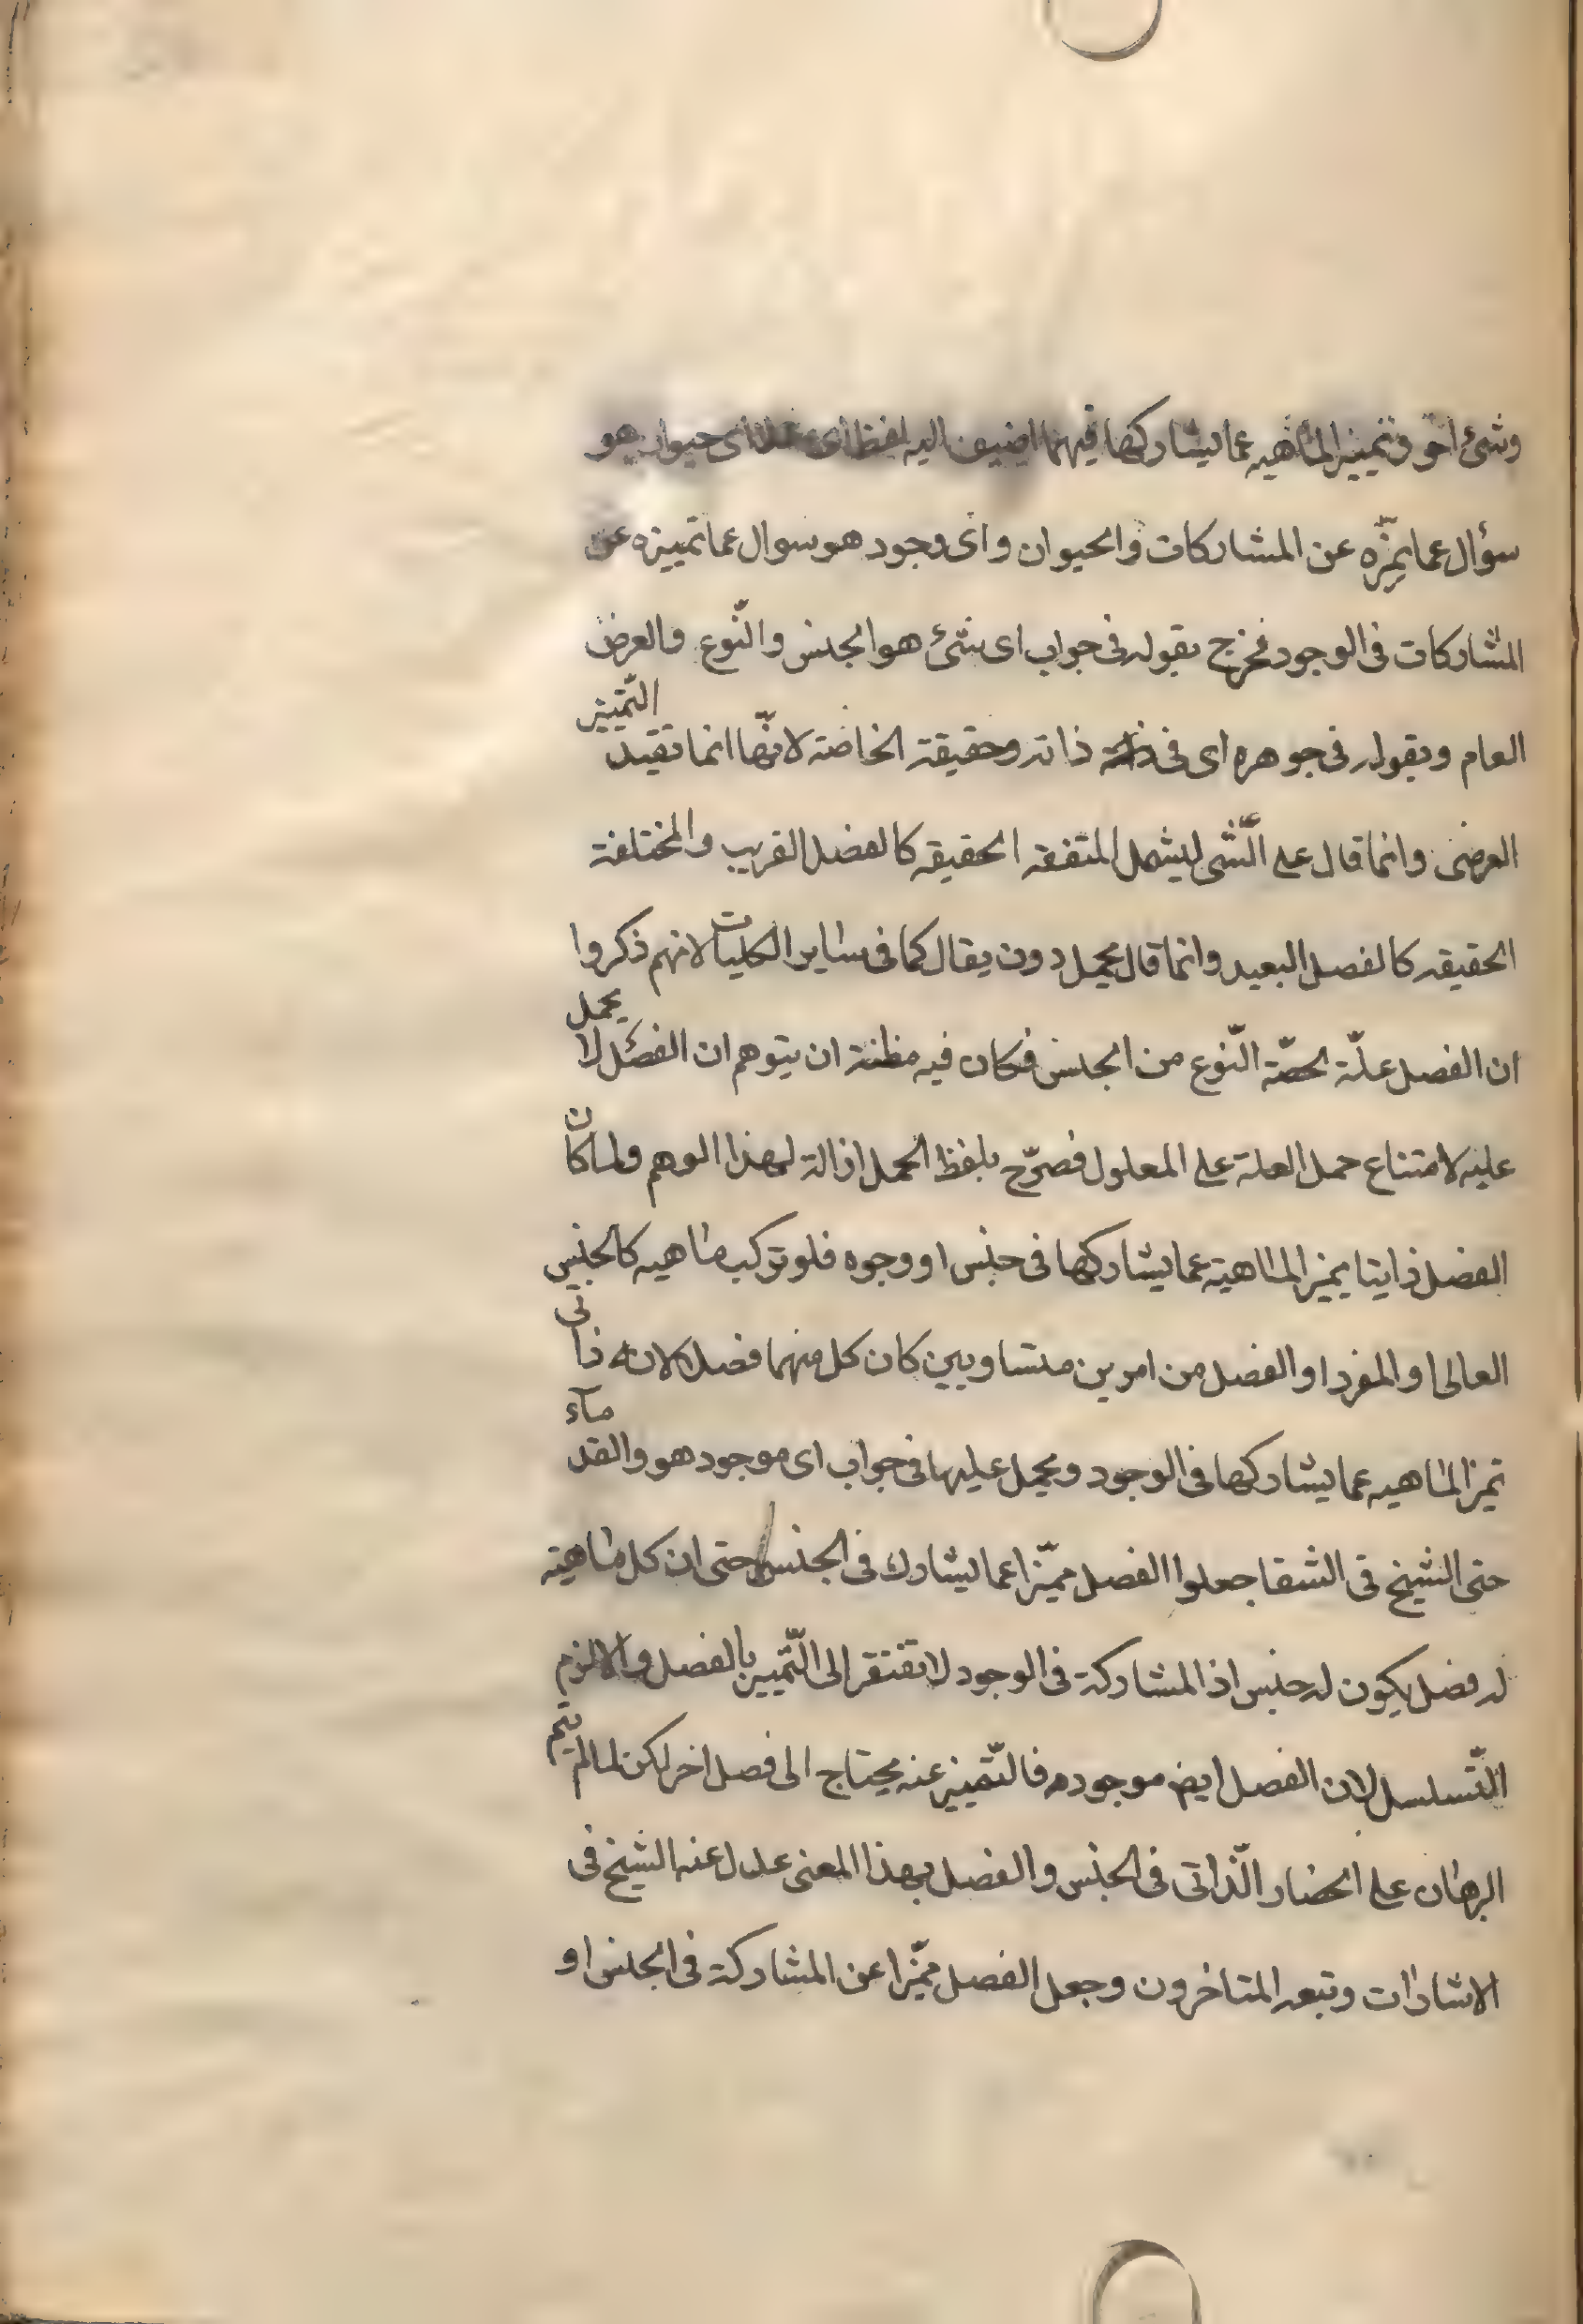 وشئ اخر وتمييز الماهيه عما يشاركها فيهما اضيف اليه لفظ اى اى حيوان هو
سؤال عما يميّزه عن المشاركات والحيوان واى وجود هو سوال عما تمييزه عن
المشاركات فى الوجود فخرج بقوله فى جواب اى شئ هو الجنس والنّوع والعرض
العام وبقوله فى جوهره اى فى ذاته وحقيقة الخاصة لانّها انما تفيد التّمييز
العرضى وانما قال على الّشى ليشمل المتفقه الحقيقه كالفصل القريب والمختلفة
الحقيقه كالفصل البعيد وانما قال يحمل دون يقال كما فى ساير الكليات لانهم ذكروا
ان الفصل علّة لحصّة النّوع من الجنس فكان فيه مظنة ان يتوهم ان الفصل لا يحمل
عليه لامتناع حمل العلة على المعلول فصرّح بلفظ الحمل ازالة لهذا الوهم ولما كان
الفصل ذاتيا يميز الماهية عما يشاركها فى جنس او وجوه فلو تركب ماهيه كالجنس
العالى او المفرد او الفصل من امرين متساويين كان كل منهما فصلا لانه ذاتى
تميز الماهيه عما يشاركها فى الوجود ويحمل عليها فى جواب اى موجود هو والقدمآء
حتى الشيخ فى الشفا جعلوا الفصل مميّزا عما يشارك فى الجنس حتى ان كل ماهية
له فصل يكون له جنس اذ المشاركة فى الوجود لا تفتقر الى التّمييز بالفصل والا لزم
التّسلسل لان الفصل ايض موجود فالتّمييز عنه يحتاج الى فصل اخر لكن لما لم يتم
البرهان على انحصار الّذاتى فى الجنس والفصل بهذا المعنى عدل عنه الشيخ فى
الاشارات وتبعه المتاخرون وجعل الفصل مميّزا عن المشاركة فى الجنس او